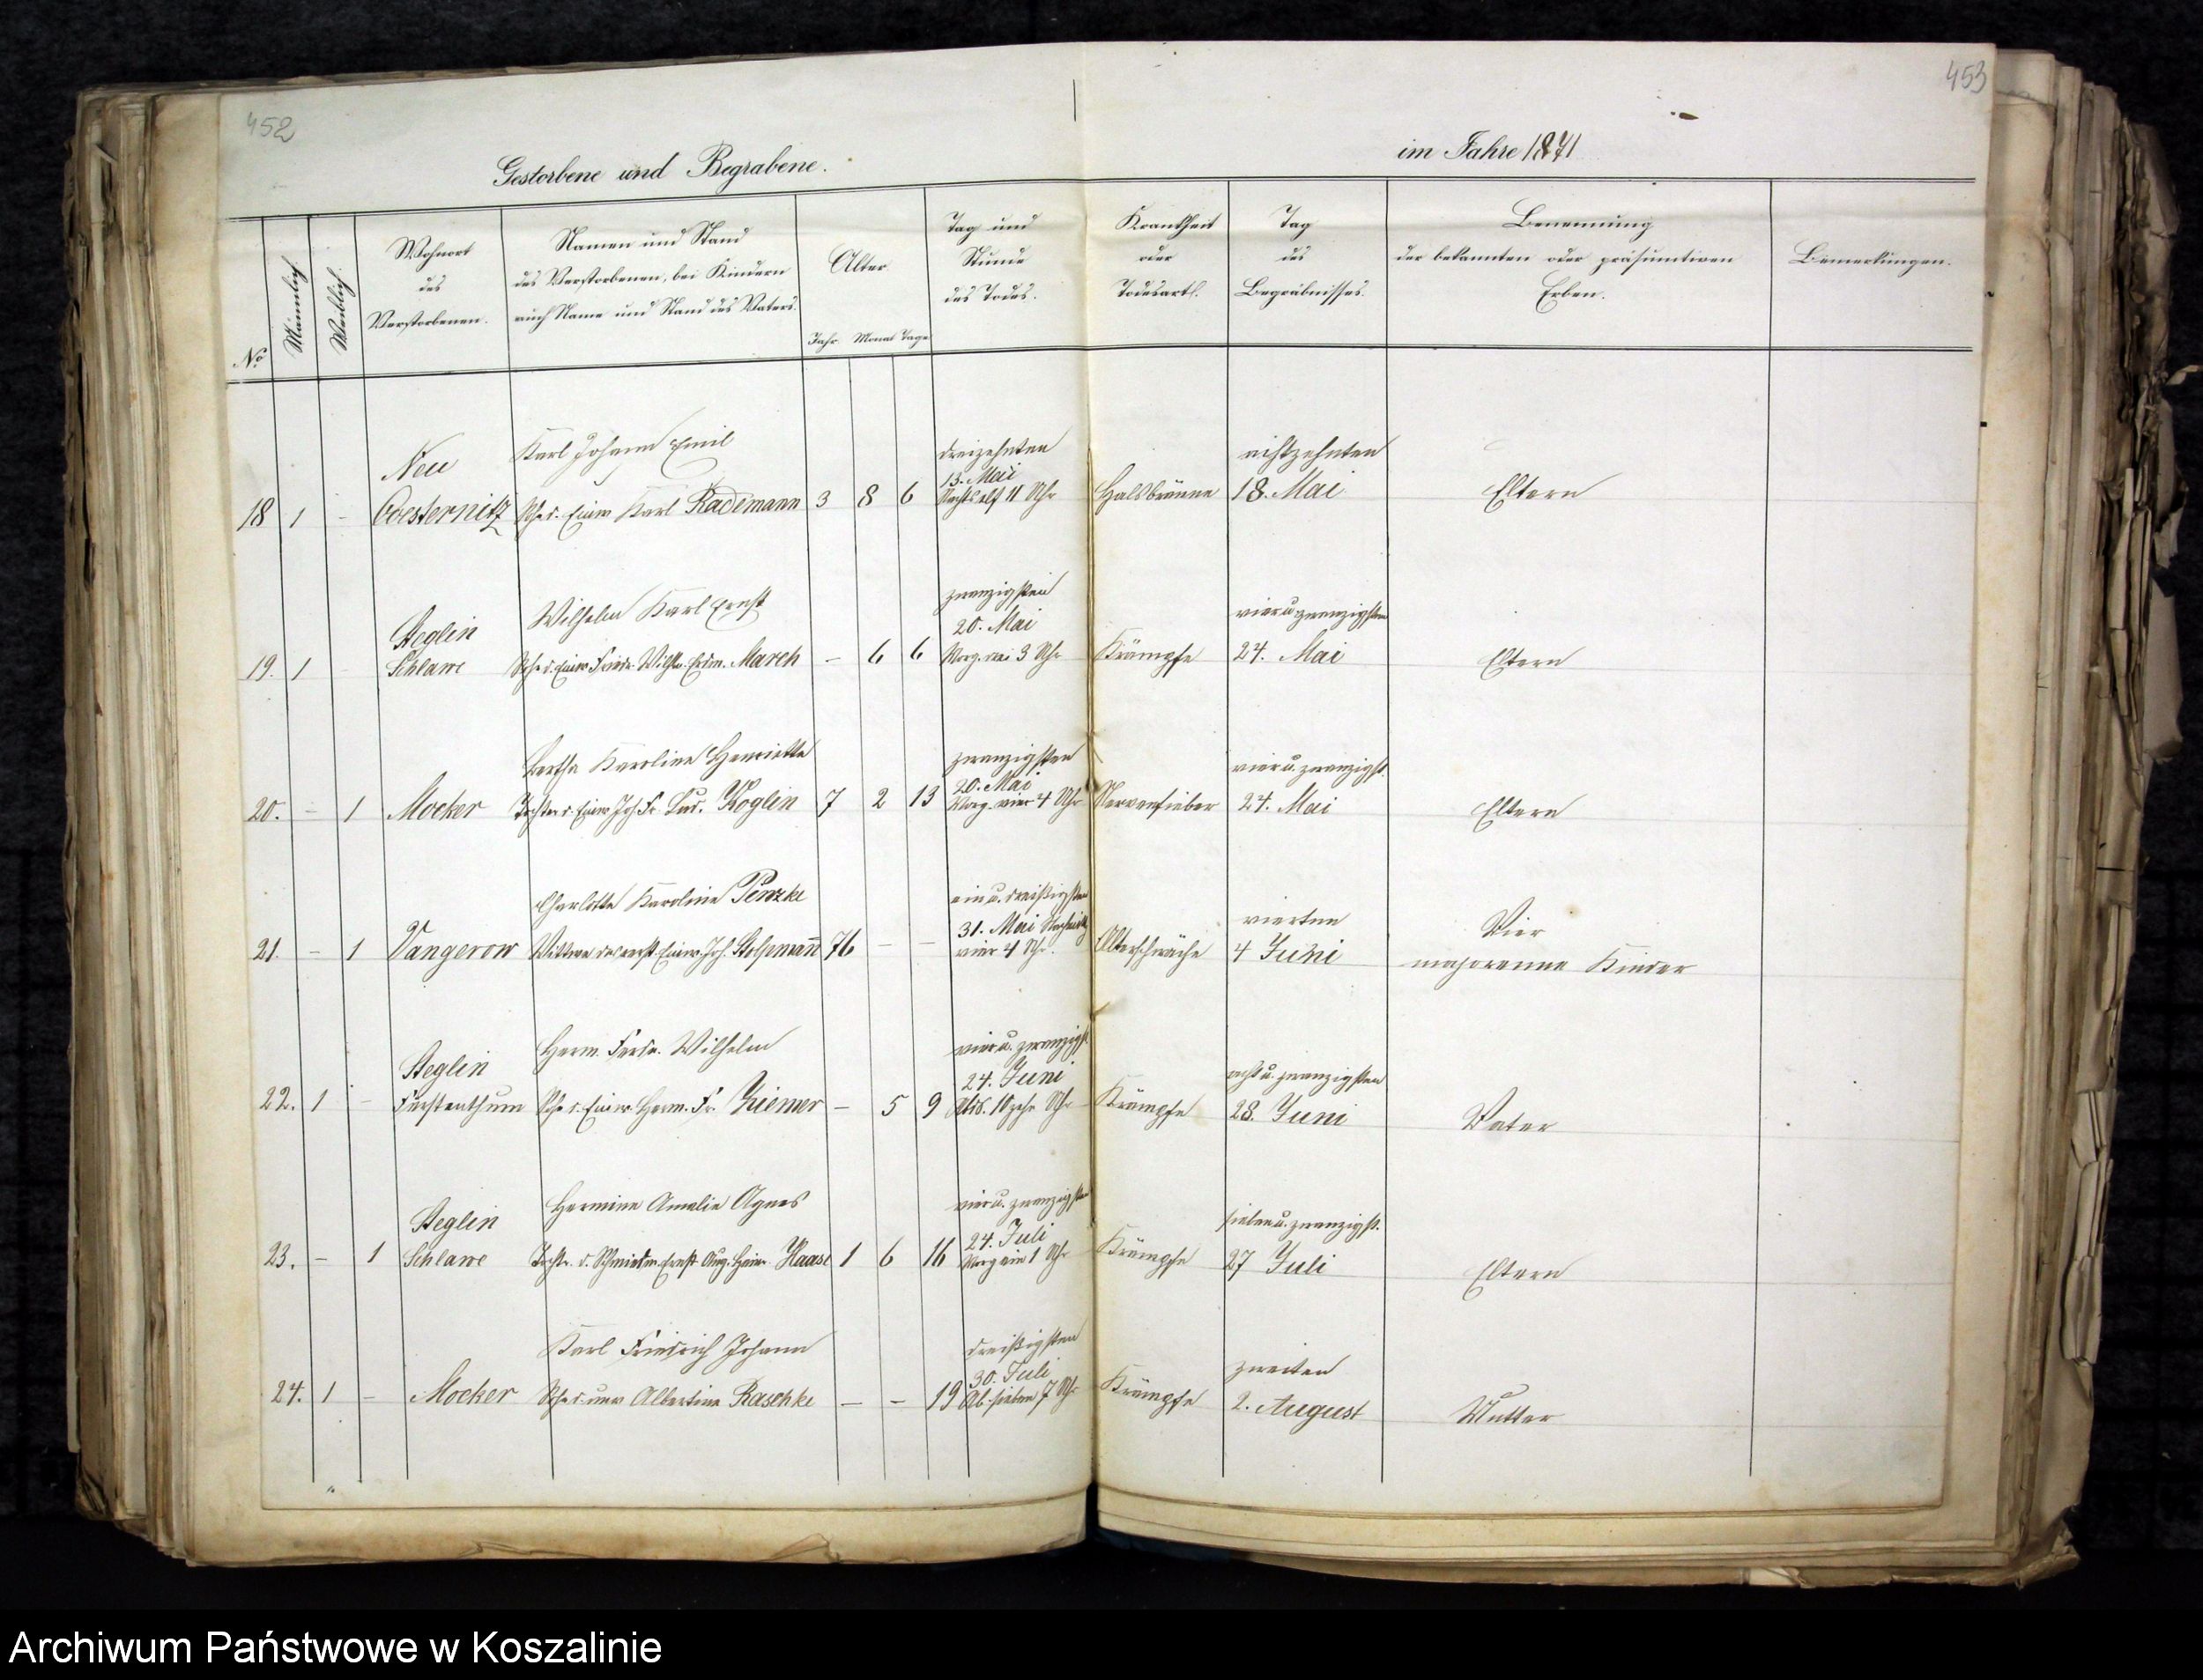 452
453
Gestorbene und Begrabene.
im Jahre 1871
No
Männlich.
Weiblich.
Wohnort
des
Verstorbenen.
Namen und Stand
des Verstorbenen, bei Kindern
auch Name und Stand des Vaters.
Alter
Jahr Monat Tage
Tag und
Stunde
des Todes.
Krankheit
oder
Todesart.
Tag
des
Begräbnisses.
Benennung
der bekannten oder präsumtiven
Erben.
Bemerkungen.
Neu Karl Johann Emil dreizehnten achtzehnten
13. Mai
18 1 - Coesternitz Sohn d. Einw Karl Rademann 3 8 6 Nachts elf 11 Uhr Halsbräune 18. Mai Eltern
zwanzigsten
Steglin Wilhelm Karl Ernst 20. Mai vier u. zwanzigsten
19. 1 Schlawe Sohn d. Einw Friedr. Wilh. Erdm. March - 6 6 Morg. drei 3 Uhr Krämpfe 24. Mai Eltern
Bertha Karoline Henriette zwanzigsten vier u. zwanzigst.
20. Mai
20. - 1 Mocker Tochter d. Einw Joh. Fr. Lud. Koglin 7 2 13 Morg. vier 4 Uhr Nervenfieber 24. Mai Eltern
Charlotte Karoline Penzke ein u. dreißigsten vierten Vier
31. Mai Nachmitt
21. - 1 Vangerow Wittwe des verst. Einw. Joh. Stolpmann 76 - - vier 4 Uhr. Altersschwäche 4 Juni majorenne Kinder
Steglin Herm. Ferd. Wilhelm vier u. zwanzigst. acht u. zwanzigsten
24. Juni
22. 1 - Fürstenthum Sohn d. Einw. Herm. Fr. Ziemer - 5 9 Abds. 10 zehn Uhr Krämpfe 28. Juni Vater
Steglin Hermine Amalie Agnes vier u. zwanzigsten sieben u. zwanzigst.
24. Juli
23. - 1 Schlawe Tochtr. d. Schmiedm. Ernst Aug. Heinr. Haase 1 6 16 Morg ein 1 Uhr Krämpfe 27 Juli Eltern
Karl Friedrich Johann dreißigsten zweiten
30. Juli
24. 1 - Mocker Sohn d. unv Albertine Raschke - - 19 Ab. sieben 7 Uhr Krämpfe 2. August Mutter
Archiwum Państwowe w Koszalinie